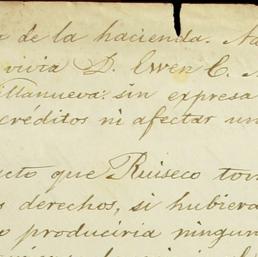 de la hacienda.
vivia D. Owen C.
Villanueva: sin expresa
créditos ni afectar un
cto que Ruiseco tou
s derechos, si hubiera
o produciria ningun